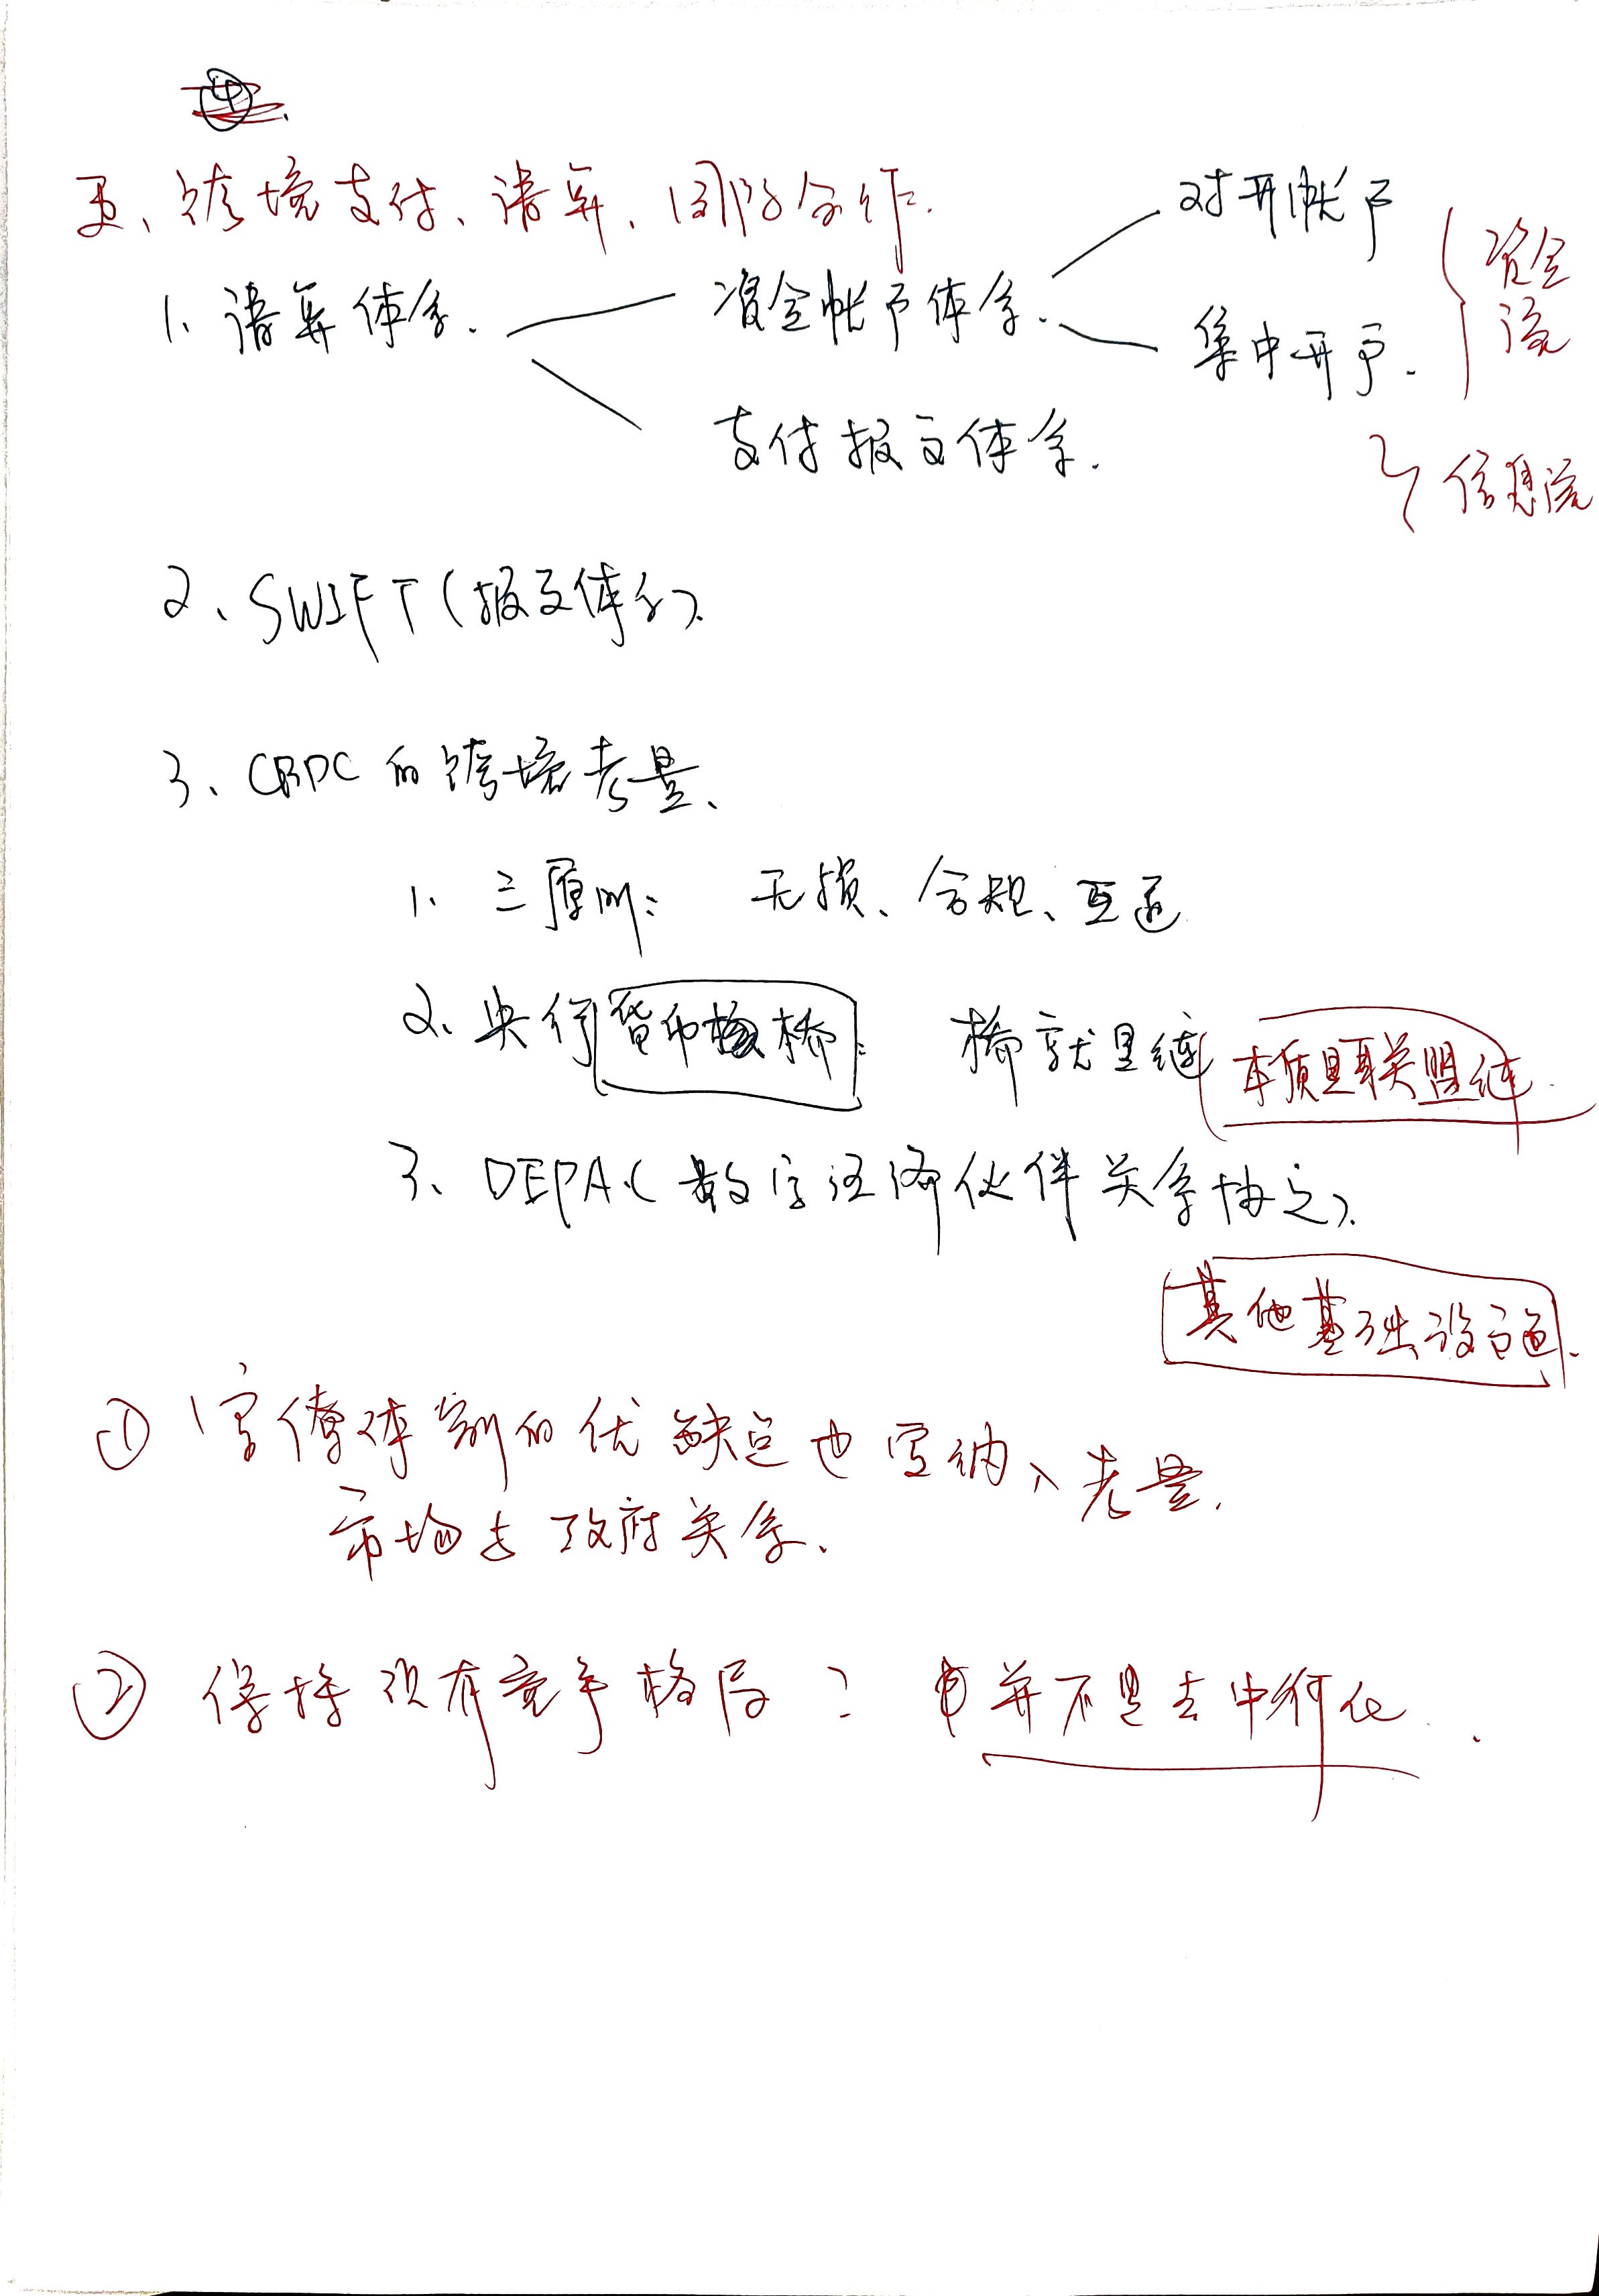 五、跨境支付、清算、国际合作.
1、清算体系.
资金帐户体系.
对开帐户
集中开户.
资金
流
支付报文体系.
信息流
2、SWIFT(报文体系).
3、CBDC的跨境考量、
1、三原则: 无损、合规、互通
2、央行货币桥: 桥就是链 本质是联盟链.
3、DEPA(数字经济伙伴关系协定).
其他基础设施.
① 官僚体制的优缺点也需纳入考量.
市场与政府关系.
② 保持现有竞争格局? 并不是去中介化.